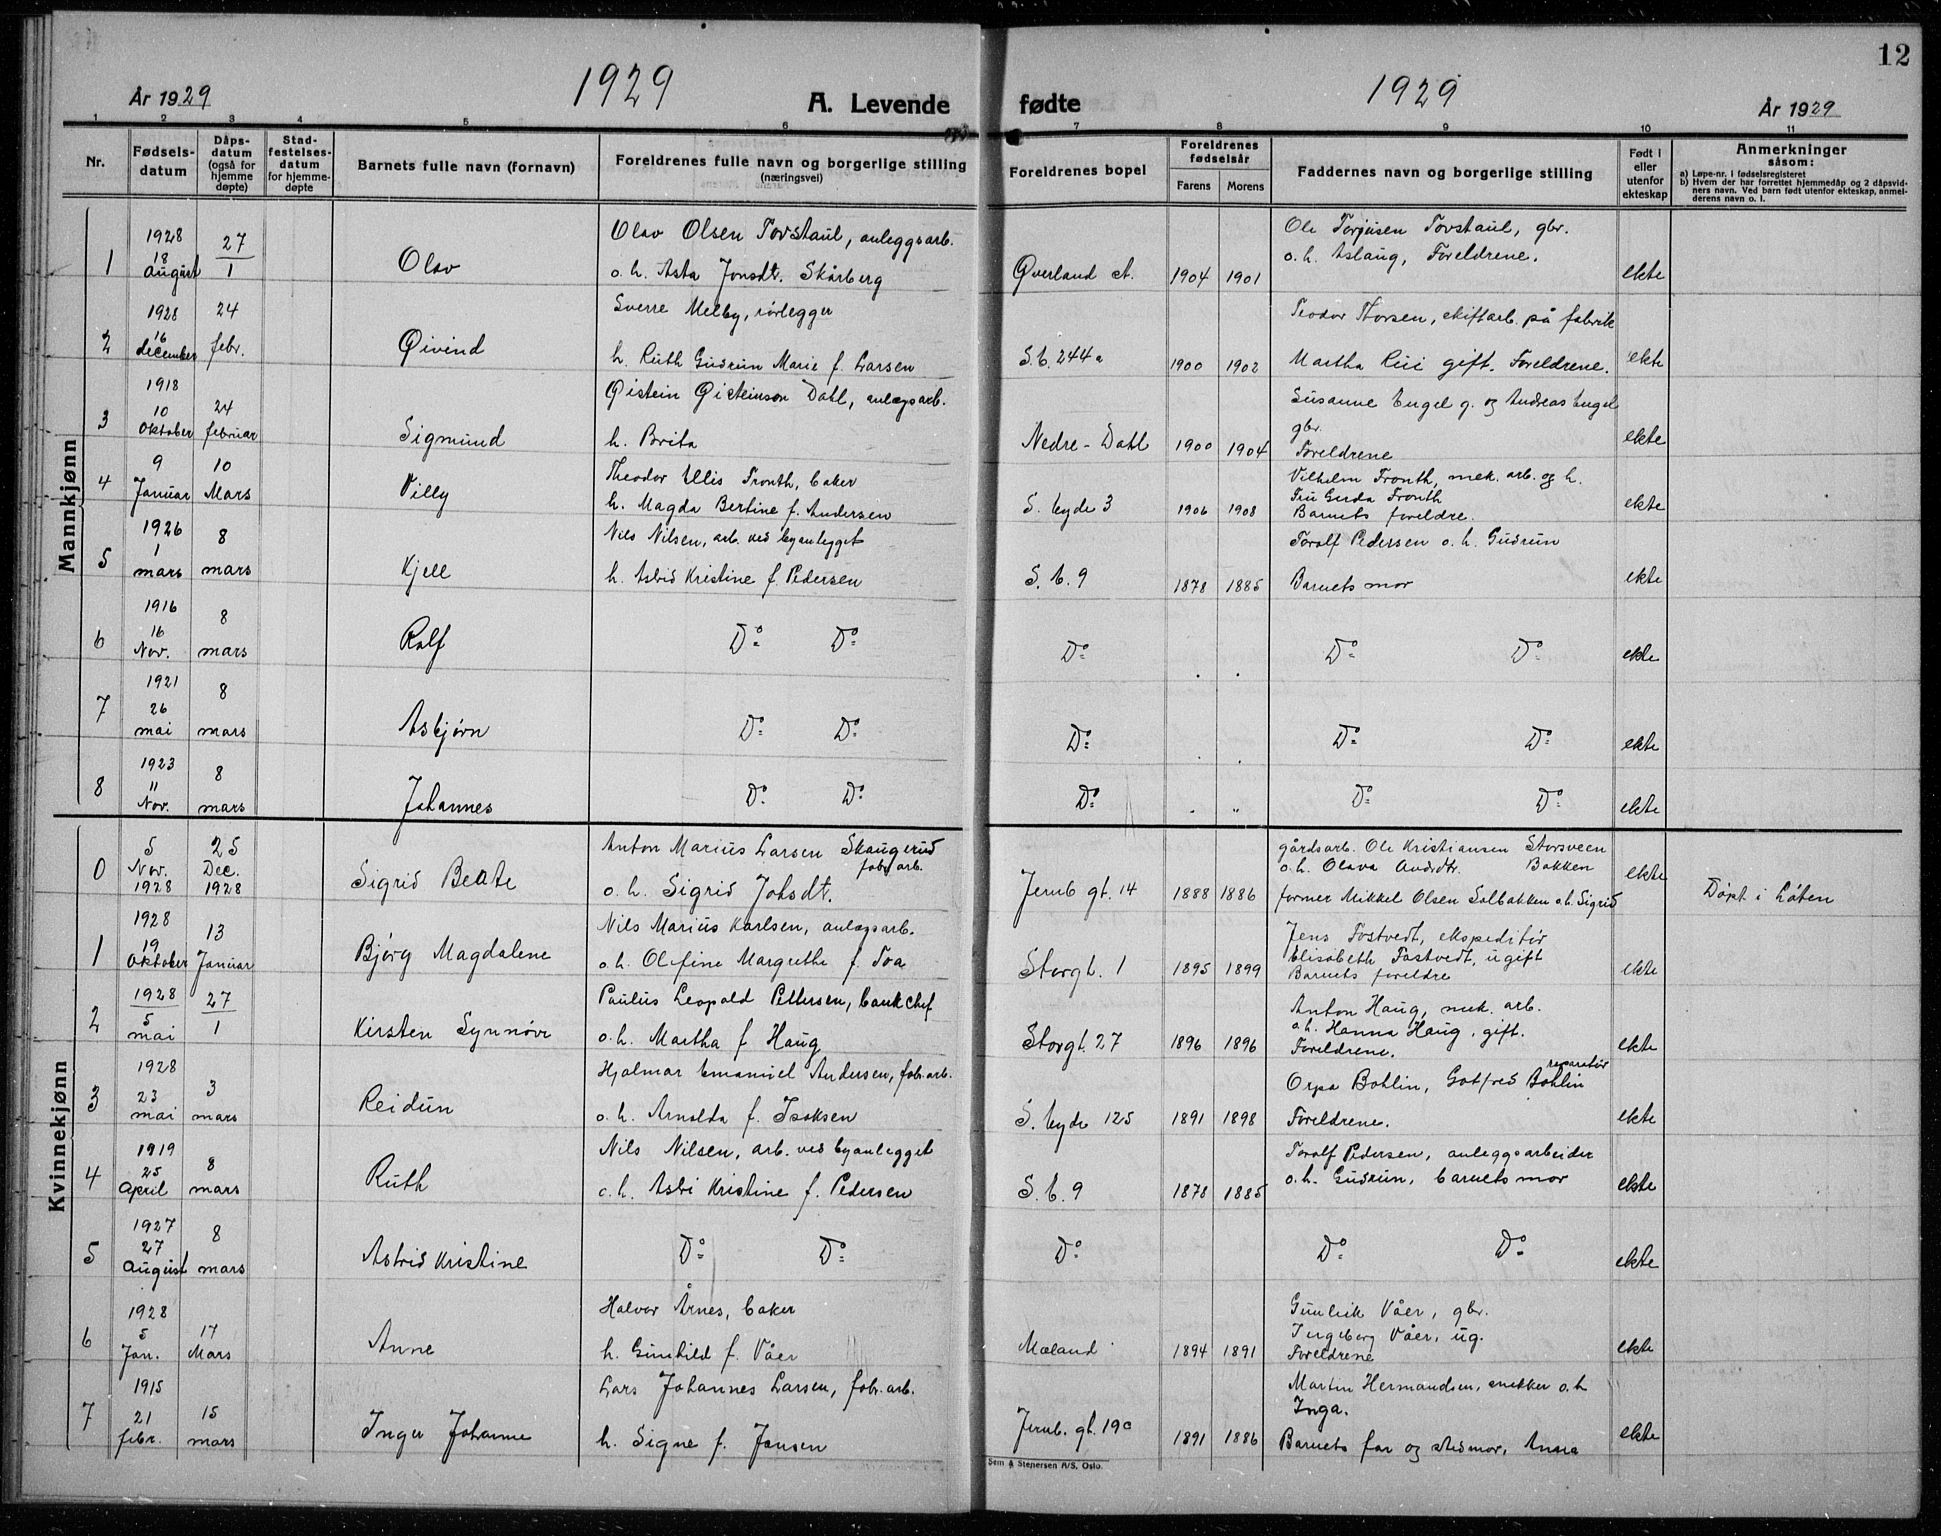 12
År 1929
1929
A. Levende fødte
1929
År 1929
1 2 3 4 5 6 7 8 9 10 11
Nr.
Fødsels-
datum
Dåps-
datum
(også for
hjemme
døpte)
Stad-
festelses-
datum
for hjemme-
døpte
Barnets fulle navn (fornavn)
Foreldrenes fulle navn og borgerlige stilling
(næringsvei)
Foreldrenes bopel
Foreldrenes
fødselsår
Farens
Morens
Faddernes navn og borgerlige stilling
Født i
eller
utenfor
ekteskap
Anmerkninger
såsom:
a) Løpe-nr. i fødselsregisteret
b) Hvem der har forrettet hjemmedåp og 2 dåpsvid-
ners navn. Ved barn født utenfor ekteskap, anmel-
derens navn o. l.
Mannkjønn
1
1928
18
august
27
1
Olav
Olav Olsen Tovstaul, anleggsarb.
o. h. Asta Jonsdt. Skårberg
Øverland
1904 1901
Ole Torjusen Tovstaul, gbr.
o. h. Aslaug, Foreldrene.
ekte
2
1928
16
december
24
febr.
Øivind
Sverre Melby, rørlegger
h. Ruth Gudrun Marie f. Larsen
S.b. 244a
1900 1902
Teodor Thorsen, skiftarb. på fabrik
Martha Rui gift. Foreldrene.
ekte
3
1918
10
Oktober
24
februar
Sigmund
Øistein Øisteinson Dahl, anlægsarb.
h. Brita
Nedre-Dahl
1900 1904
Susanne Engel g. og Andreas Engel
gbr.
Foreldrene
ekte
4
9
Januar
10
Mars
Villy
Theodor Ellis Fronth, baker
h. Magda Bertine f. Andersen
S. byde 3
1906 1908
Vilhelm Fronth, mek. arb. og h.
Fru Gerda Fronth
Barnets foreldre.
ekte
5
1926
1
mars
8
mars
Kjell
Nils Nilsen, arb. ved byanlegget
h. Astrid Kristine f. Pedersen
S. b. 9
1878 1885
Toralf Pedersen o. h. Gudrun
Barnets mor
ekte
6
1916
16
Nov.
8
mars
Ralf
Do Do
Do
Do Do
ekte
7
1921
26
mai
8
mars
Asbjørn
Do Do
Do
Do Do
ekte
8
1923
11
Nov.
8
mars
Johannes
Do Do
Do
Do Do
ekte
Kvinnekjønn
0
5
Nov.
1928
25
Dec.
1928
Sigrid Beate
Anton Marius Larsen Skaugerud
fabr. arb.
o. h. Sigrid Johsdt.
Jernb gt. 14
1888 1886
gårdsarb. Ole Kristiansen Storsveen
o. h. Olava Andrdtr. Bakken
former Mikkel Olsen Solbakken o. h. Sigrid
ekte
Døpt i Løten
1
1928
19
Oktober
13
Januar
Bjørg Magdalene
Nils Marius Karlsen, anlægsarb.
o. h. Olefine Margrethe f. Toa
Storgt. 1
1895 1899
Jens Fostvedt, ekspeditør
Elisabeth Fastvedt, ugift
Barnets foreldre
ekte
2
1928
5
mai
27
1
Kirsten Synnøve
Paulus Leopold Pettersen, bankchef
o. h. Martha f Haug
Storgt. 27
1896 1896
Anton Haug, mek. arb.
o. h. Hanna Haug, gift.
Foreldrene.
ekte
3
1928
23
mai
3
mars
Reidun
Hjalmar Emanuel Andersen, fabr. arb.
o. h. Arnolda f. Isaksen
S. byde 125
1891 1898
reparatør
Orpa Bohlin, Gotfred Bohlin
Foreldrene.
ekte
4
1919
25
April
8
mars
Ruth
Nils Nilsen, arb. ved byanlegget
o. h. Astri Kristine f. Pedersen
S. b. 9
1878 1885
Toralf Pedersen, anleggsarbeider
o. h. Gudrun, barnets mor
ekte
5
1927
27
August
8
mars
Astrid Kristine
Do Do
Do
Do Do
ekte
6
1928
5
Jan.
17
Mars
Anne
Halvor Årnes, baker
h. Gunhild f. Våer
Mæland
1894 1891
Gunleik Våer, gbr.
Ingeberg Våer, ug.
Foreldrene
ekte
7
1915
21
febr.
15
mars
Inger Johanne
Lars Johannes Larsen, fabr. arb.
h. Signe f. Jansen
Jernb. gt. 19c
1891 1886
Martin Hermandsen, snekker o. h
Inga.
Barnets far og stedmor, Anna
ekte
Sem & Stenersen A/S, Oslo.